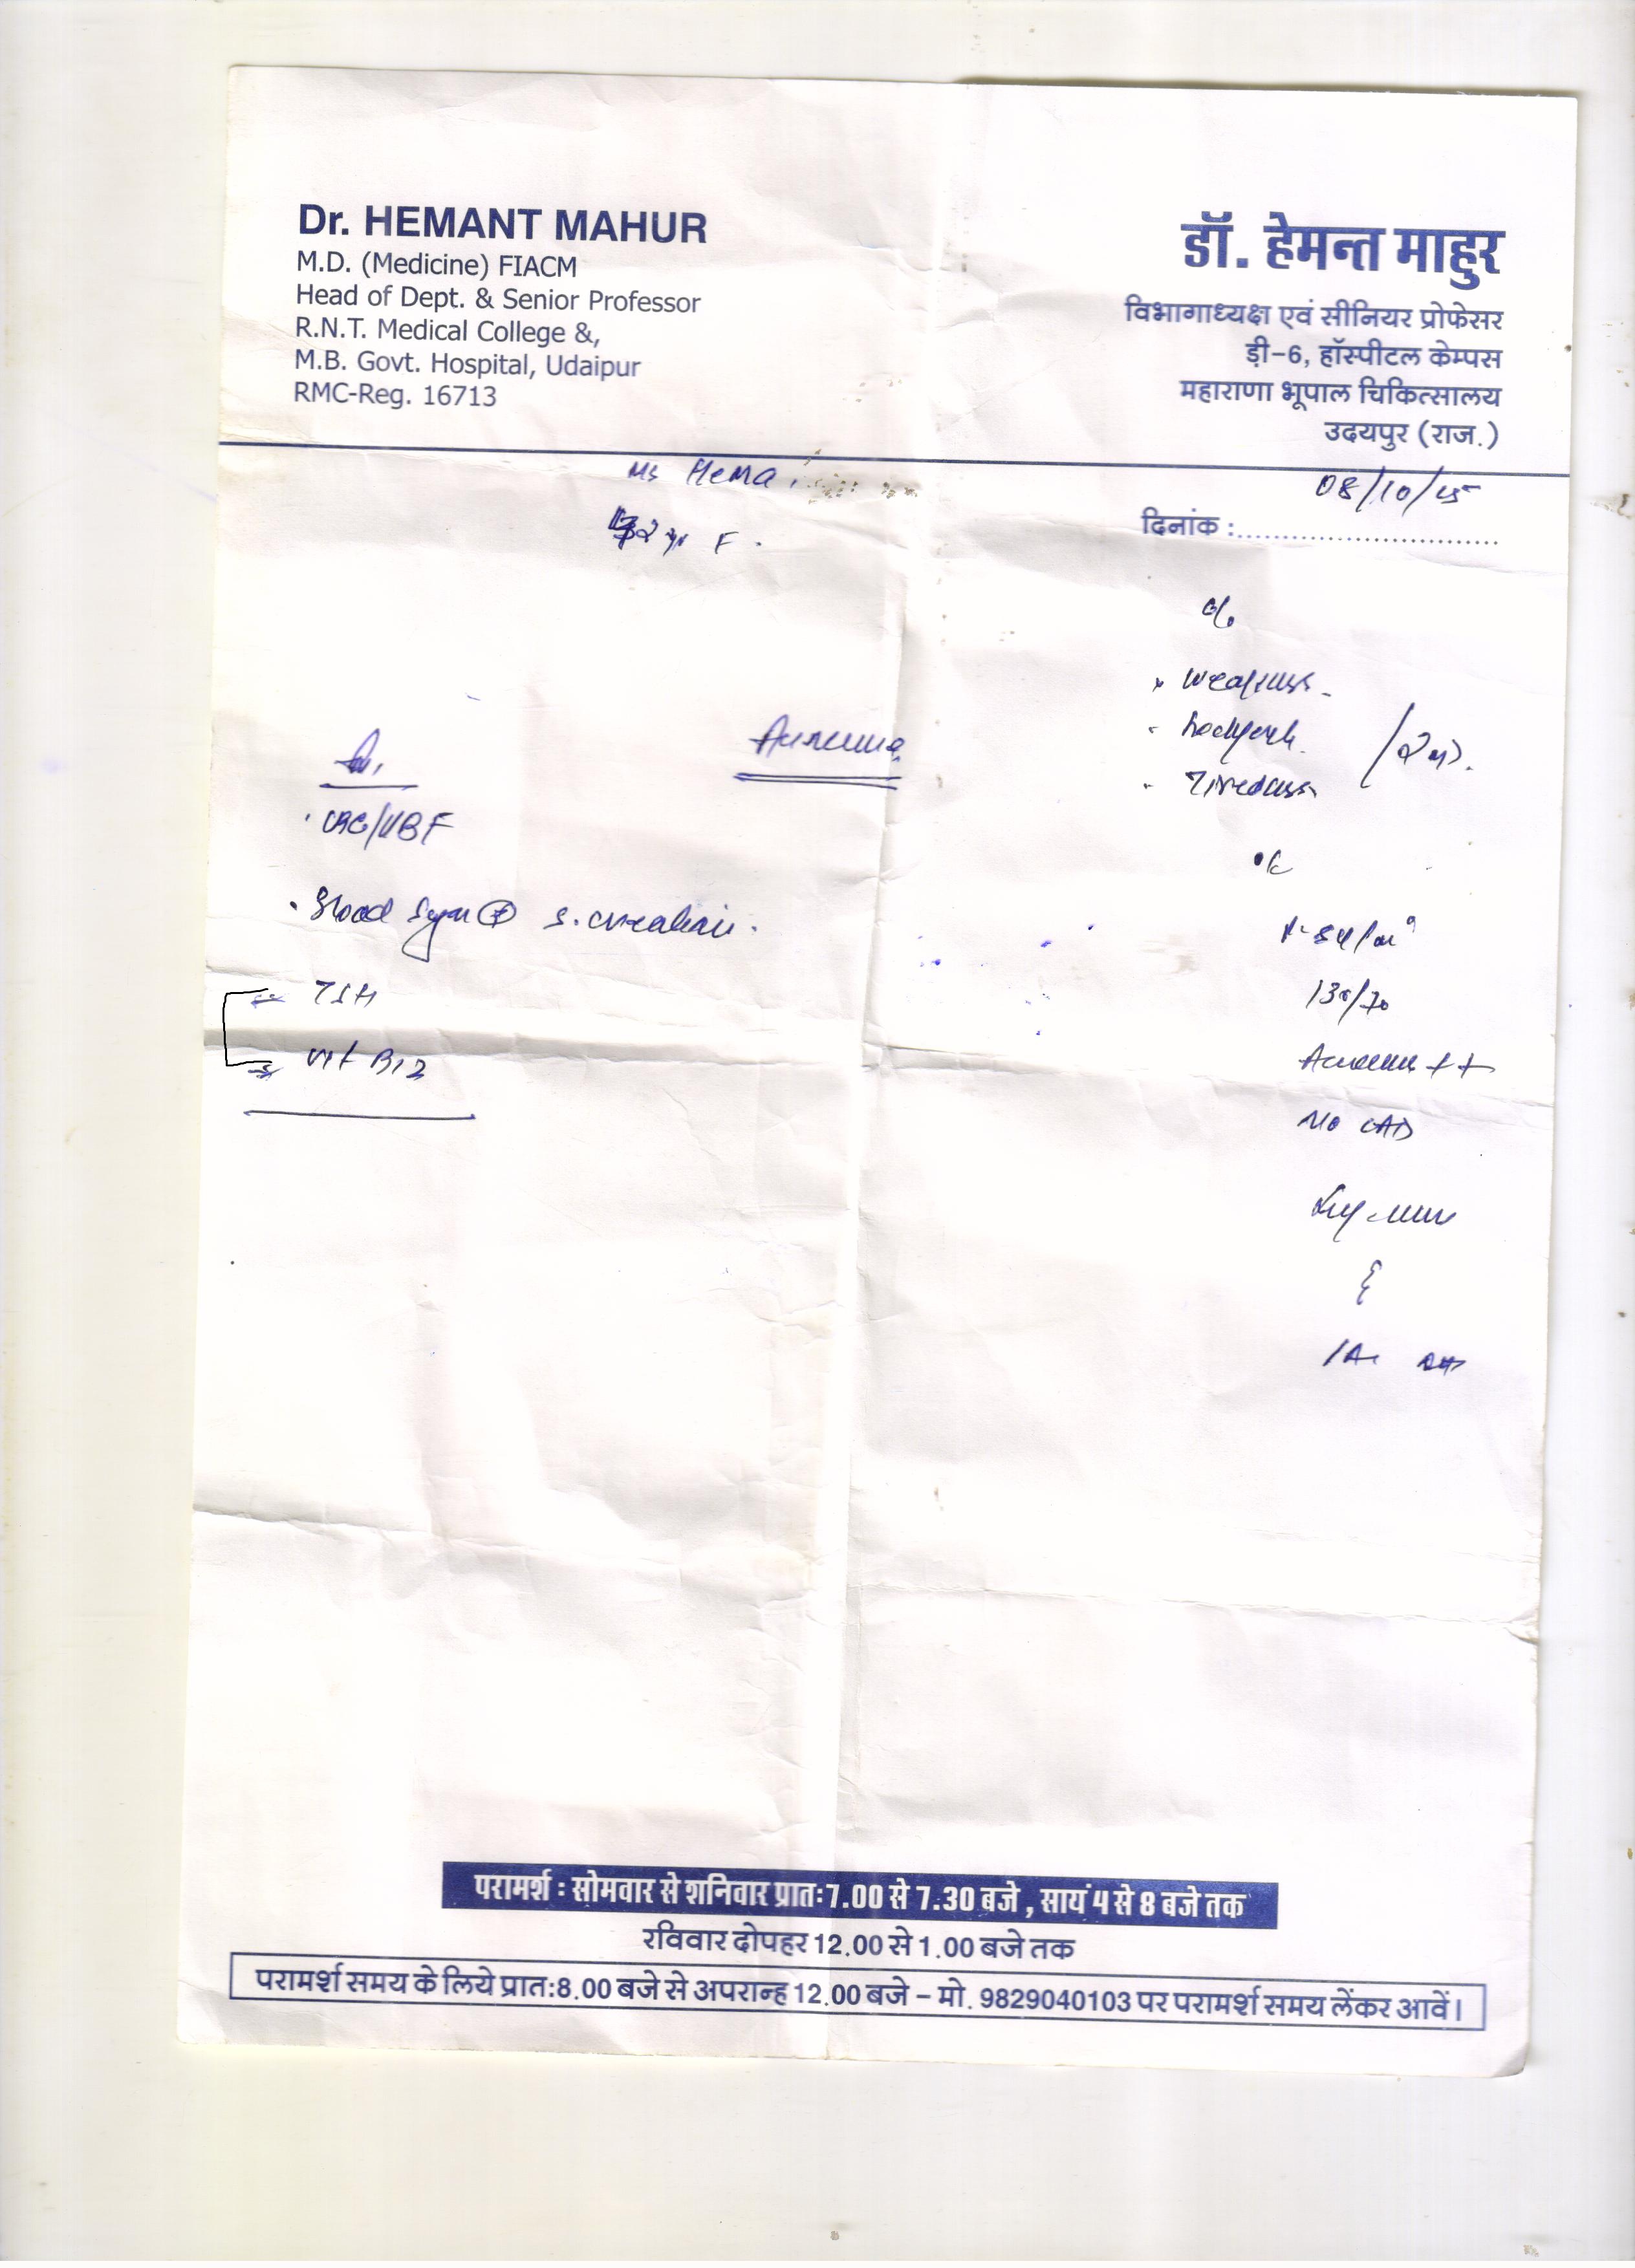 Dr. HEMANT MAHUR
M.D. (Medicine) FIACM
Head of Dept. & Senior Professor
R.N.T. Medical College &,
M.B. Govt. Hospital, Udaipur
RMC-Reg. 16713
डॉ. हेमन्त माहुर
विभागाध्यक्ष एवं सीनियर प्रोफेसर
ड़ी-6, हॉस्पीटल केम्पस
महाराणा भूपाल चिकित्सालय
उदयपुर (राज.)
Ms Hema
F
08/10/
दिनांक :
c/o
Weakness
Bodyache
Tiredness
Anaemia
CBC/PBF
Blood Sugar s. creatinine
TSH
Vit B12
130/70
Anaemia ++
No
परामर्श : सोमवार से शनिवार प्रातः 7.00 से 7.30 बजे , सायं 4 से 8 बजे तक
रविवार दोपहर 12.00 से 1.00 बजे तक
परामर्श समय के लिये प्रात:8.00 बजे से अपरान्ह 12.00 बजे – मो. 9829040103 पर परामर्श समय लेंकर आवें।